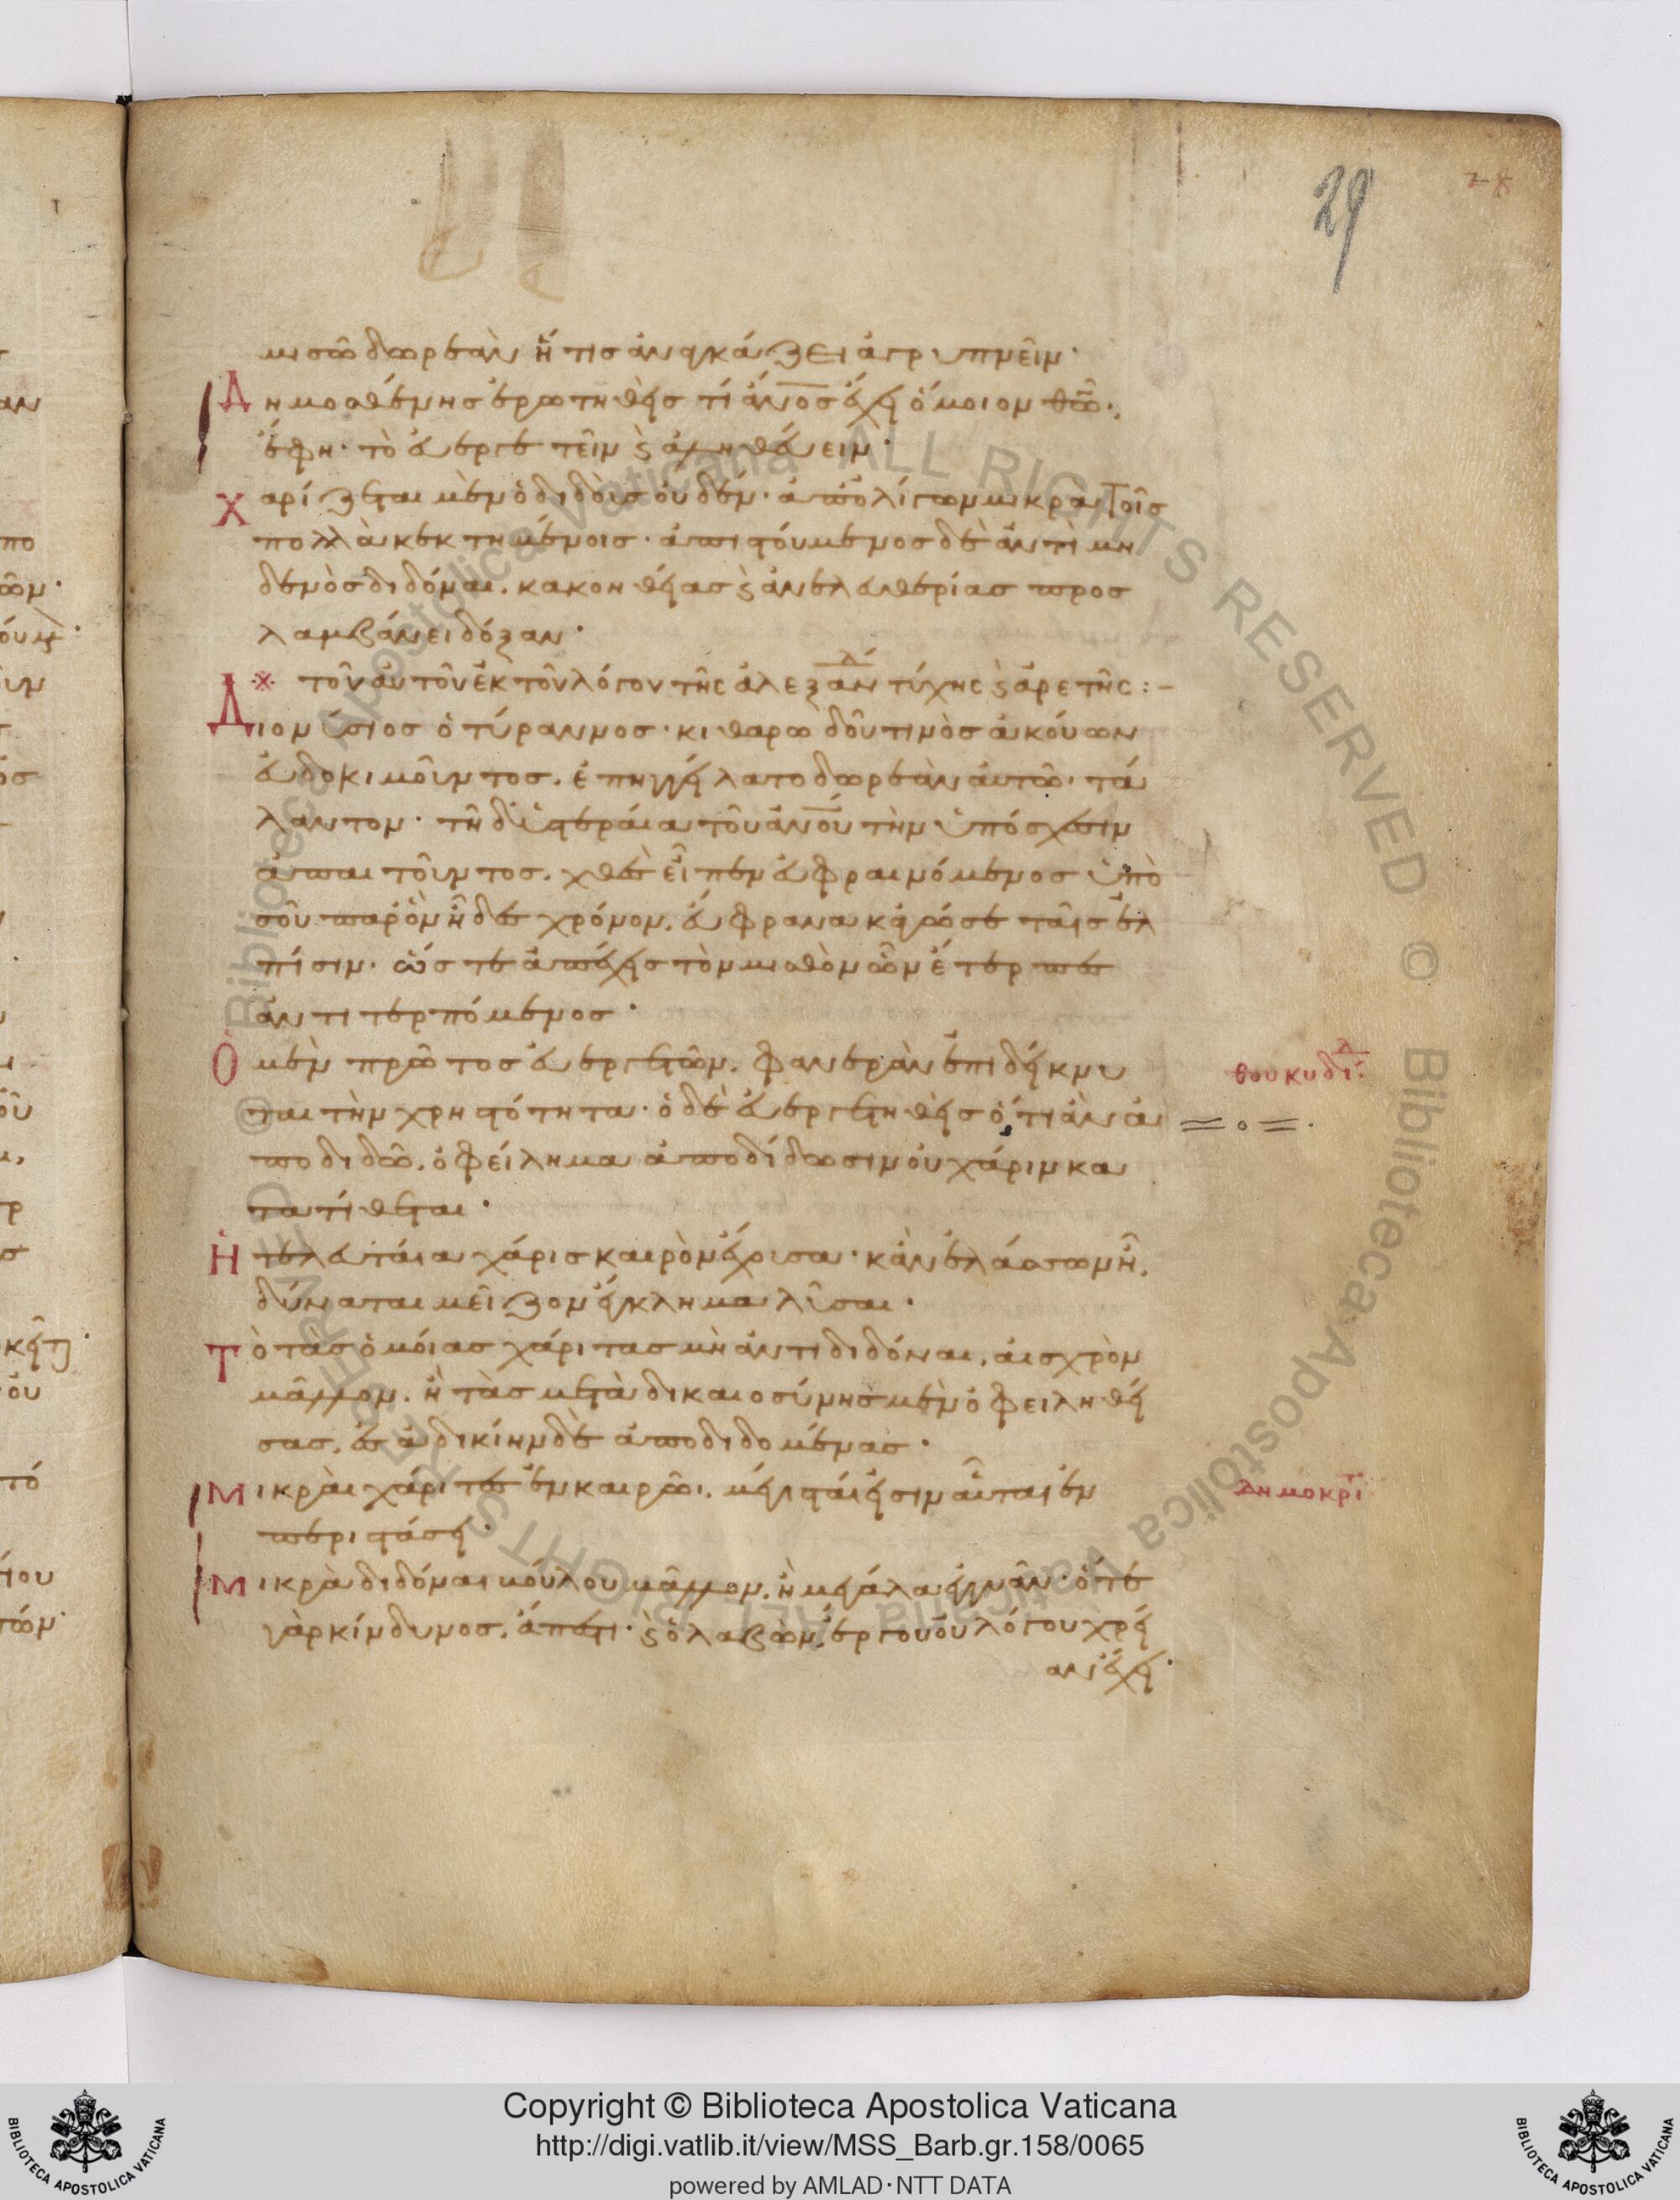 29
μισῶ δωρεὰν ἥτις ἀναγκάζει ἀγρυπνεῖν·
Δημοσθένης ἐρωτηθεὶς τί ἄνος ἔχει ὅμοιον θῶ·
ἔφη· τὸ εὐεργετεῖν ϗ ἀληθεύειν·
Χαρίζεται μὲν ὁ διδοὺς οὐδέν· ἀπολίγων μικρὰ τοῖς
πολλὰ κεκτημένοις· ἀπιστούμενος δὲ ἀντὶ μη
δενὸς διδόναι, κακοηθείας ϗ ἀνελευθερίας προσ
λαμβάνει δόξαν·
※ τοῦ αὐτοῦ ἐκ τοῦ λόγου τῆς ἀλεξάνδ τύχης ϗ ἀρετῆς :-
Διονύσιος ὁ τύραννος· κιθαρωδοῦ τινὸς ἀκούων
εὐδοκιμοῦντος, ἐπηγγείλατο δωρεὰν αὐτῶ· τά
λαντον· τῆ δ' ὑστεραία τοῦ ἀνου τὴν ὑπόσχεσιν
ἀπαιτοῦντος, χθὲς εἶπεν εὐφραινόμενος ὑπὸ
σοῦ παρ' ὃν ἦδες χρόνον, εὔφρανα κἀγώ σε ταῖς ἐλ
πίσιν· ὥστε ἀπέχεις τὸν μισθὸν ὧν ἔτερπες
ἀντιτερπόμενος·
Ὁ μὲν πρῶτος εὐεργετῶν, φανερὰν ἐπιδείκνυ
ται τὴν χρηστότητα· ὁ δὲ εὐεργετηθεὶς ὅτι ἂν ἀ
ποδιδῶ, ὀφείλημα ἀποδίδωσιν οὐ χάριν κα
τατίθεται·
θουκυδίδ
Ἡ τελευταία χάρις καιρὸν ἔχουσα· κἂν ἐλάσσων ἦ,
δύναται μεῖζον ἔγκλημα λῦσαι·
Τὸ τὰς ὁμοίας χάριτας μὴ ἀντιδιδόναι, αἰσχρὸν
μᾶλλον, ἢ τὰς μετὰ δικαιοσύνης μὲν ὀφειληθεί
σας, εἰς ἀδικίην δὲ ἀποδιδομένας·
Μικραὶ χάριτες ἐν καιρῶι, μέγισταί εἰσιν αὗται ἐν
περιστάσει·
δημοκρίτ
Μικρὰ διδόναι βούλου μᾶλλον, ἢ μεγάλα ἐγγυᾶν· ὅτε
γὰρ κίνδυνος, ἄπεστι· ϗ ὁ λαβὼν, ἔργου οὐ λόγου χρεί
αν ἔχει·
Copyright © Biblioteca Apostolica Vaticana
http://digi.vatlib.it/view/MSS_Barb.gr.158/0065
powered by AMLAD·NTT DATA